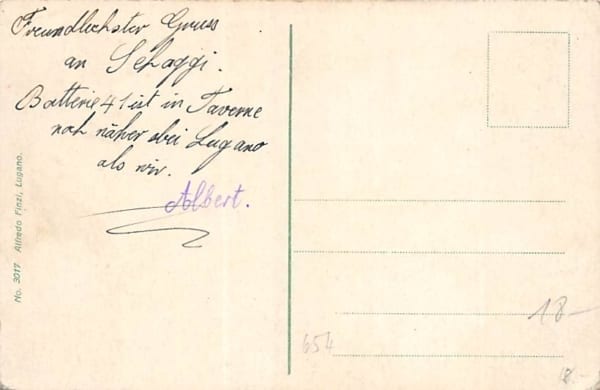 Freundlichster Gruss
an Schaggi.
Batterie 41 ist in Taverne
noch näher bei Lugano
als wir.
Albert.
No. 3017 Alfredo Finzi, Lugano.
18-
654
8.-